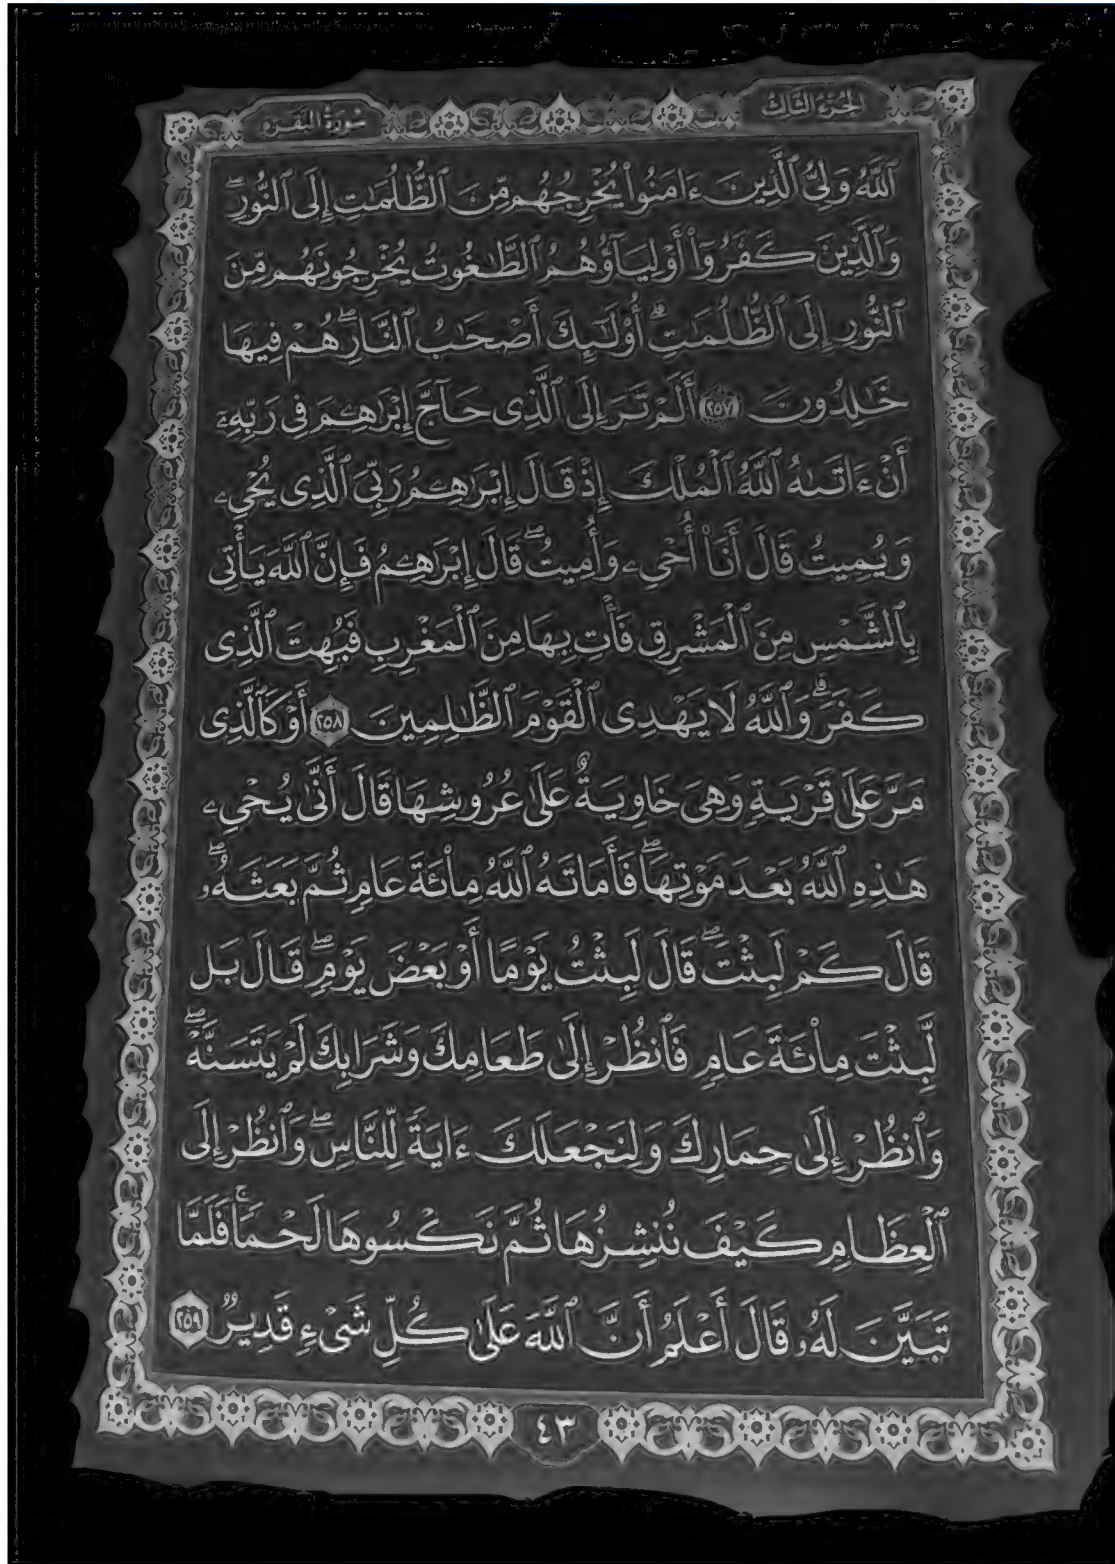 الجزء الثالث
سورة البقرة
ٱللَّهُ وَلِىُّ ٱلَّذِينَ ءَامَنُوا۟ يُخْرِجُهُم مِّنَ ٱلظُّلُمَٰتِ إِلَى ٱلنُّورِ ۖ
وَٱلَّذِينَ كَفَرُوٓا۟ أَوْلِيَآؤُهُمُ ٱلطَّٰغُوتُ يُخْرِجُونَهُم مِّنَ
ٱلنُّورِ إِلَى ٱلظُّلُمَٰتِ ۗ أُو۟لَٰٓئِكَ أَصْحَٰبُ ٱلنَّارِ ۖ هُمْ فِيهَا
خَٰلِدُونَ ٢٥٧ أَلَمْ تَرَ إِلَى ٱلَّذِى حَآجَّ إِبْرَٰهِۦمَ فِى رَبِّهِۦٓ
أَنْ ءَاتَىٰهُ ٱللَّهُ ٱلْمُلْكَ إِذْ قَالَ إِبْرَٰهِۦمُ رَبِّىَ ٱلَّذِى يُحْىِۦ
وَيُمِيتُ قَالَ أَنَا۠ أُحْىِۦ وَأُمِيتُ ۖ قَالَ إِبْرَٰهِۦمُ فَإِنَّ ٱللَّهَ يَأْتِى
بِٱلشَّمْسِ مِنَ ٱلْمَشْرِقِ فَأْتِ بِهَا مِنَ ٱلْمَغْرِبِ فَبُهِتَ ٱلَّذِى
كَفَرَ ۗ وَٱللَّهُ لَا يَهْدِى ٱلْقَوْمَ ٱلظَّٰلِمِينَ ٢٥٨ أَوْ كَٱلَّذِى
مَرَّ عَلَىٰ قَرْيَةٍ وَهِىَ خَاوِيَةٌ عَلَىٰ عُرُوشِهَا قَالَ أَنَّىٰ يُحْىِۦ
هَٰذِهِ ٱللَّهُ بَعْدَ مَوْتِهَا ۖ فَأَمَاتَهُ ٱللَّهُ مِا۟ئَةَ عَامٍ ثُمَّ بَعَثَهُۥ ۖ
قَالَ كَمْ لَبِثْتَ ۖ قَالَ لَبِثْتُ يَوْمًا أَوْ بَعْضَ يَوْمٍ ۖ قَالَ بَل
لَّبِثْتَ مِا۟ئَةَ عَامٍ فَٱنظُرْ إِلَىٰ طَعَامِكَ وَشَرَابِكَ لَمْ يَتَسَنَّهْ ۖ
وَٱنظُرْ إِلَىٰ حِمَارِكَ وَلِنَجْعَلَكَ ءَايَةً لِّلنَّاسِ ۖ وَٱنظُرْ إِلَى
ٱلْعِظَامِ كَيْفَ نُنشِزُهَا ثُمَّ نَكْسُوهَا لَحْمًا ۚ فَلَمَّا
تَبَيَّنَ لَهُۥ قَالَ أَعْلَمُ أَنَّ ٱللَّهَ عَلَىٰ كُلِّ شَىْءٍ قَدِيرٌ ٢٥٩
٤٣